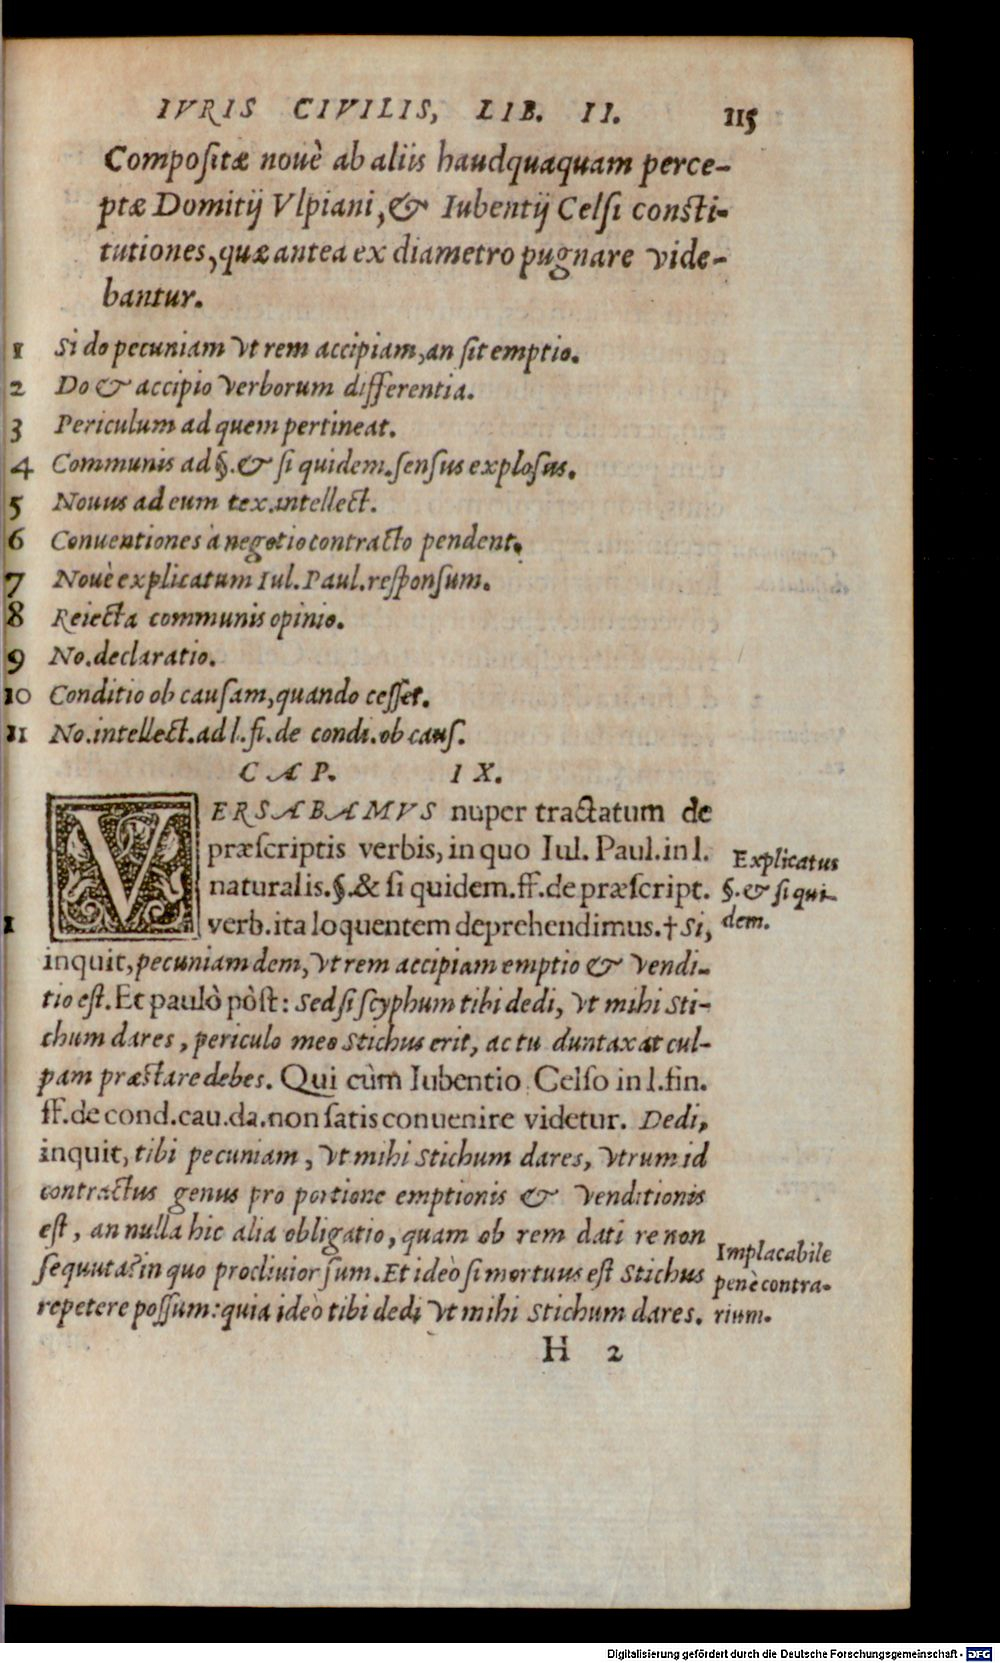 IVRIS CIVILIS, LIB. II. 115
Compositæ nouè ab aliis haudquaquam perce-
ptæ Domitij Vlpiani, & Iubentij Celsi consti-
tutiones, quæ antea ex diametro pugnare vide-
bantur.
1 Si do pecuniam vt rem accipiam, an sit emptio.
2 Do & accipio verborum differentia.
3 Periculum ad quem pertineat.
4 Communis ad §. & si quidem. sensus explosus.
5 Nouus ad eum tex. intellect.
6 Conuentiones à negotio contracto pendent.
7 Nouè explicatum Iul. Paul. responsum.
8 Reiecta communis opinio.
9 No. declaratio.
10 Conditio ob causam, quando cesset.
11 No. intellect. ad l. fi. de condi. ob caus.
CAP. IX.
VERSABAMVS nuper tractatum de
præscriptis verbis, in quo Iul. Paul. in l.
naturalis. §. & si quidem. ff. de præscript.
verb. ita loquentem deprehendimus. † Si,
inquit, pecuniam dem, vt rem accipiam emptio & vendi-
tio est. Et paulò pòst: Sed si scyphum tibi dedi, vt mihi Sti-
chum dares, periculo meo Stichus erit, ac tu duntaxat cul-
pam præstare debes. Qui cùm Iubentio Celso in l. fin.
ff. de cond. cau. da. non satis conuenire videtur. Dedi,
inquit, tibi pecuniam, vt mihi Stichum dares, vtrum id
contractus genus pro portione emptionis & venditionis
est, an nulla hic alia obligatio, quam ob rem dati re non
sequuta? in quo procliuior sum. Et ideò si mortuus est Stichus
repetere possum: quia ideò tibi dedi vt mihi Stichum dares.
H 2
1
Explicatus
§. & si qui-
dem.
Implacabile
penè contra-
rium.
Digitalisierung gefördert durch die Deutsche Forschungsgemeinschaft - DFG